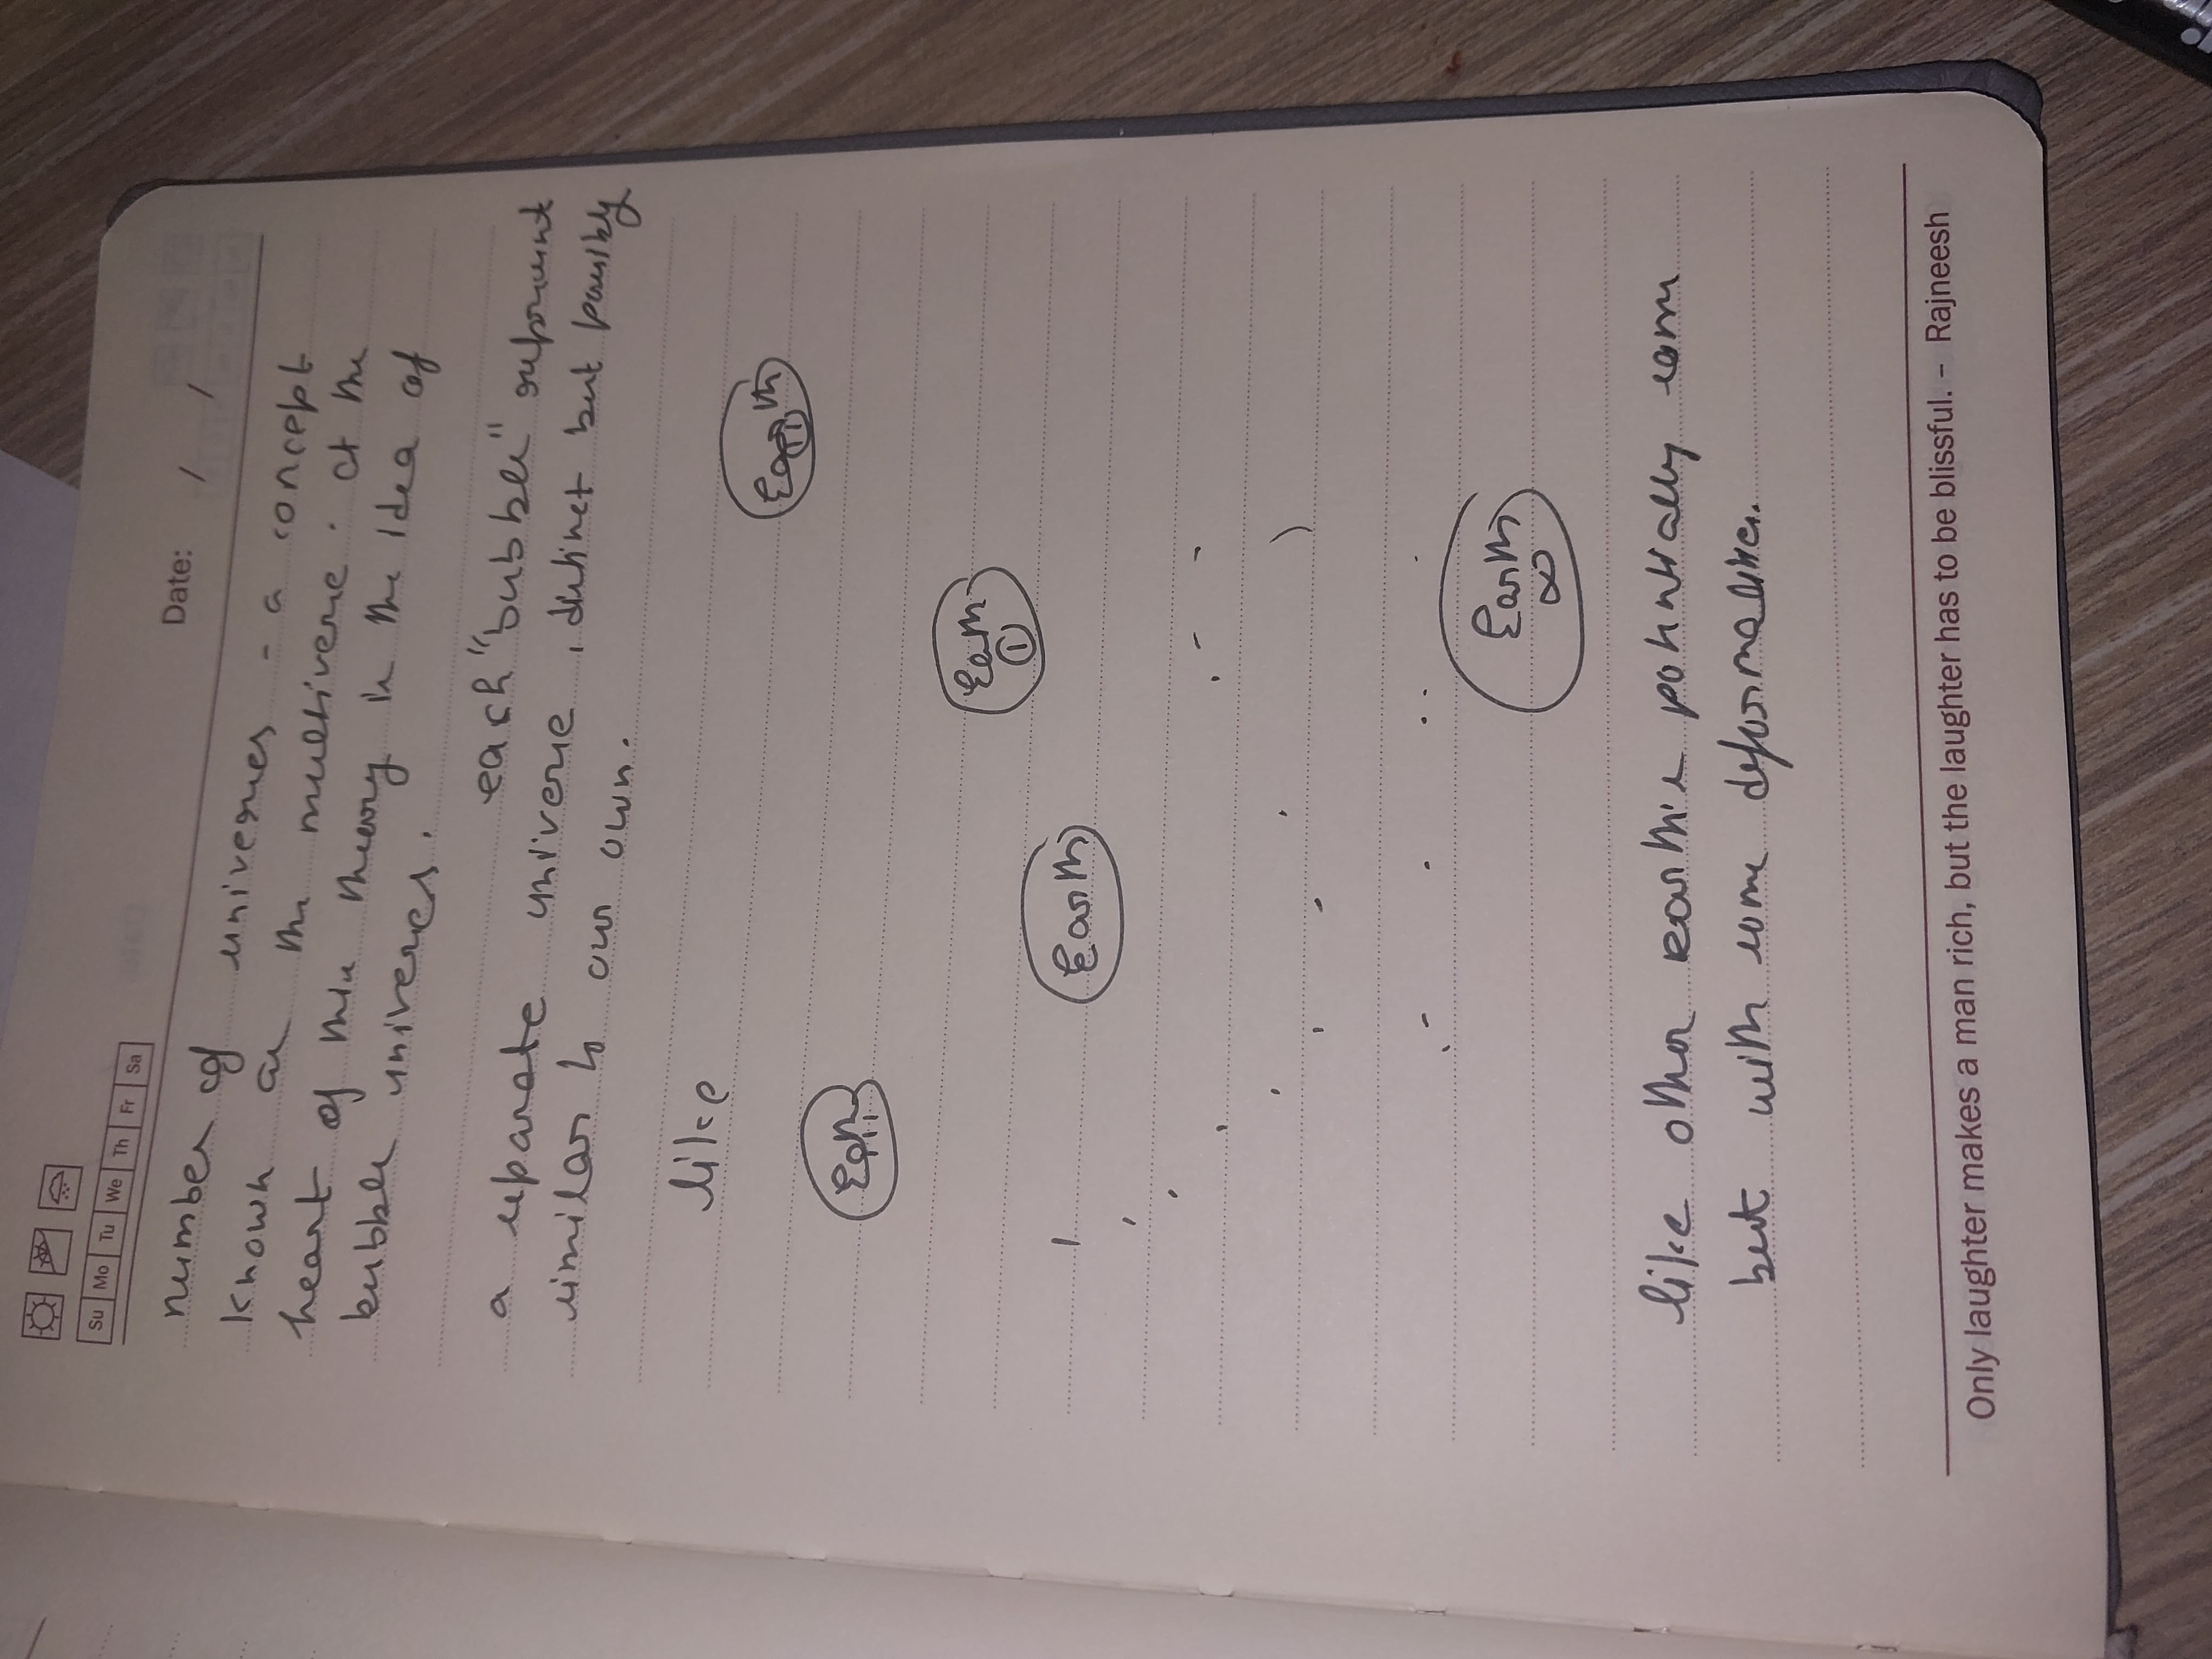 Su Mo Tu We Th Fr Sa
Date: / /
number of universes - a concept
known as the multiverse. at the
heart of this theory is the idea of
bubble universes.
each "bubble" represent
a separate universe, distinct but possibly
similar to our own.
like
Earth
11
Earth
111
Earth
1
Earth
Earth
∞
like other earth's potentially same
but with some deformalities.
Only laughter makes a man rich, but the laughter has to be blissful. – Rajneesh